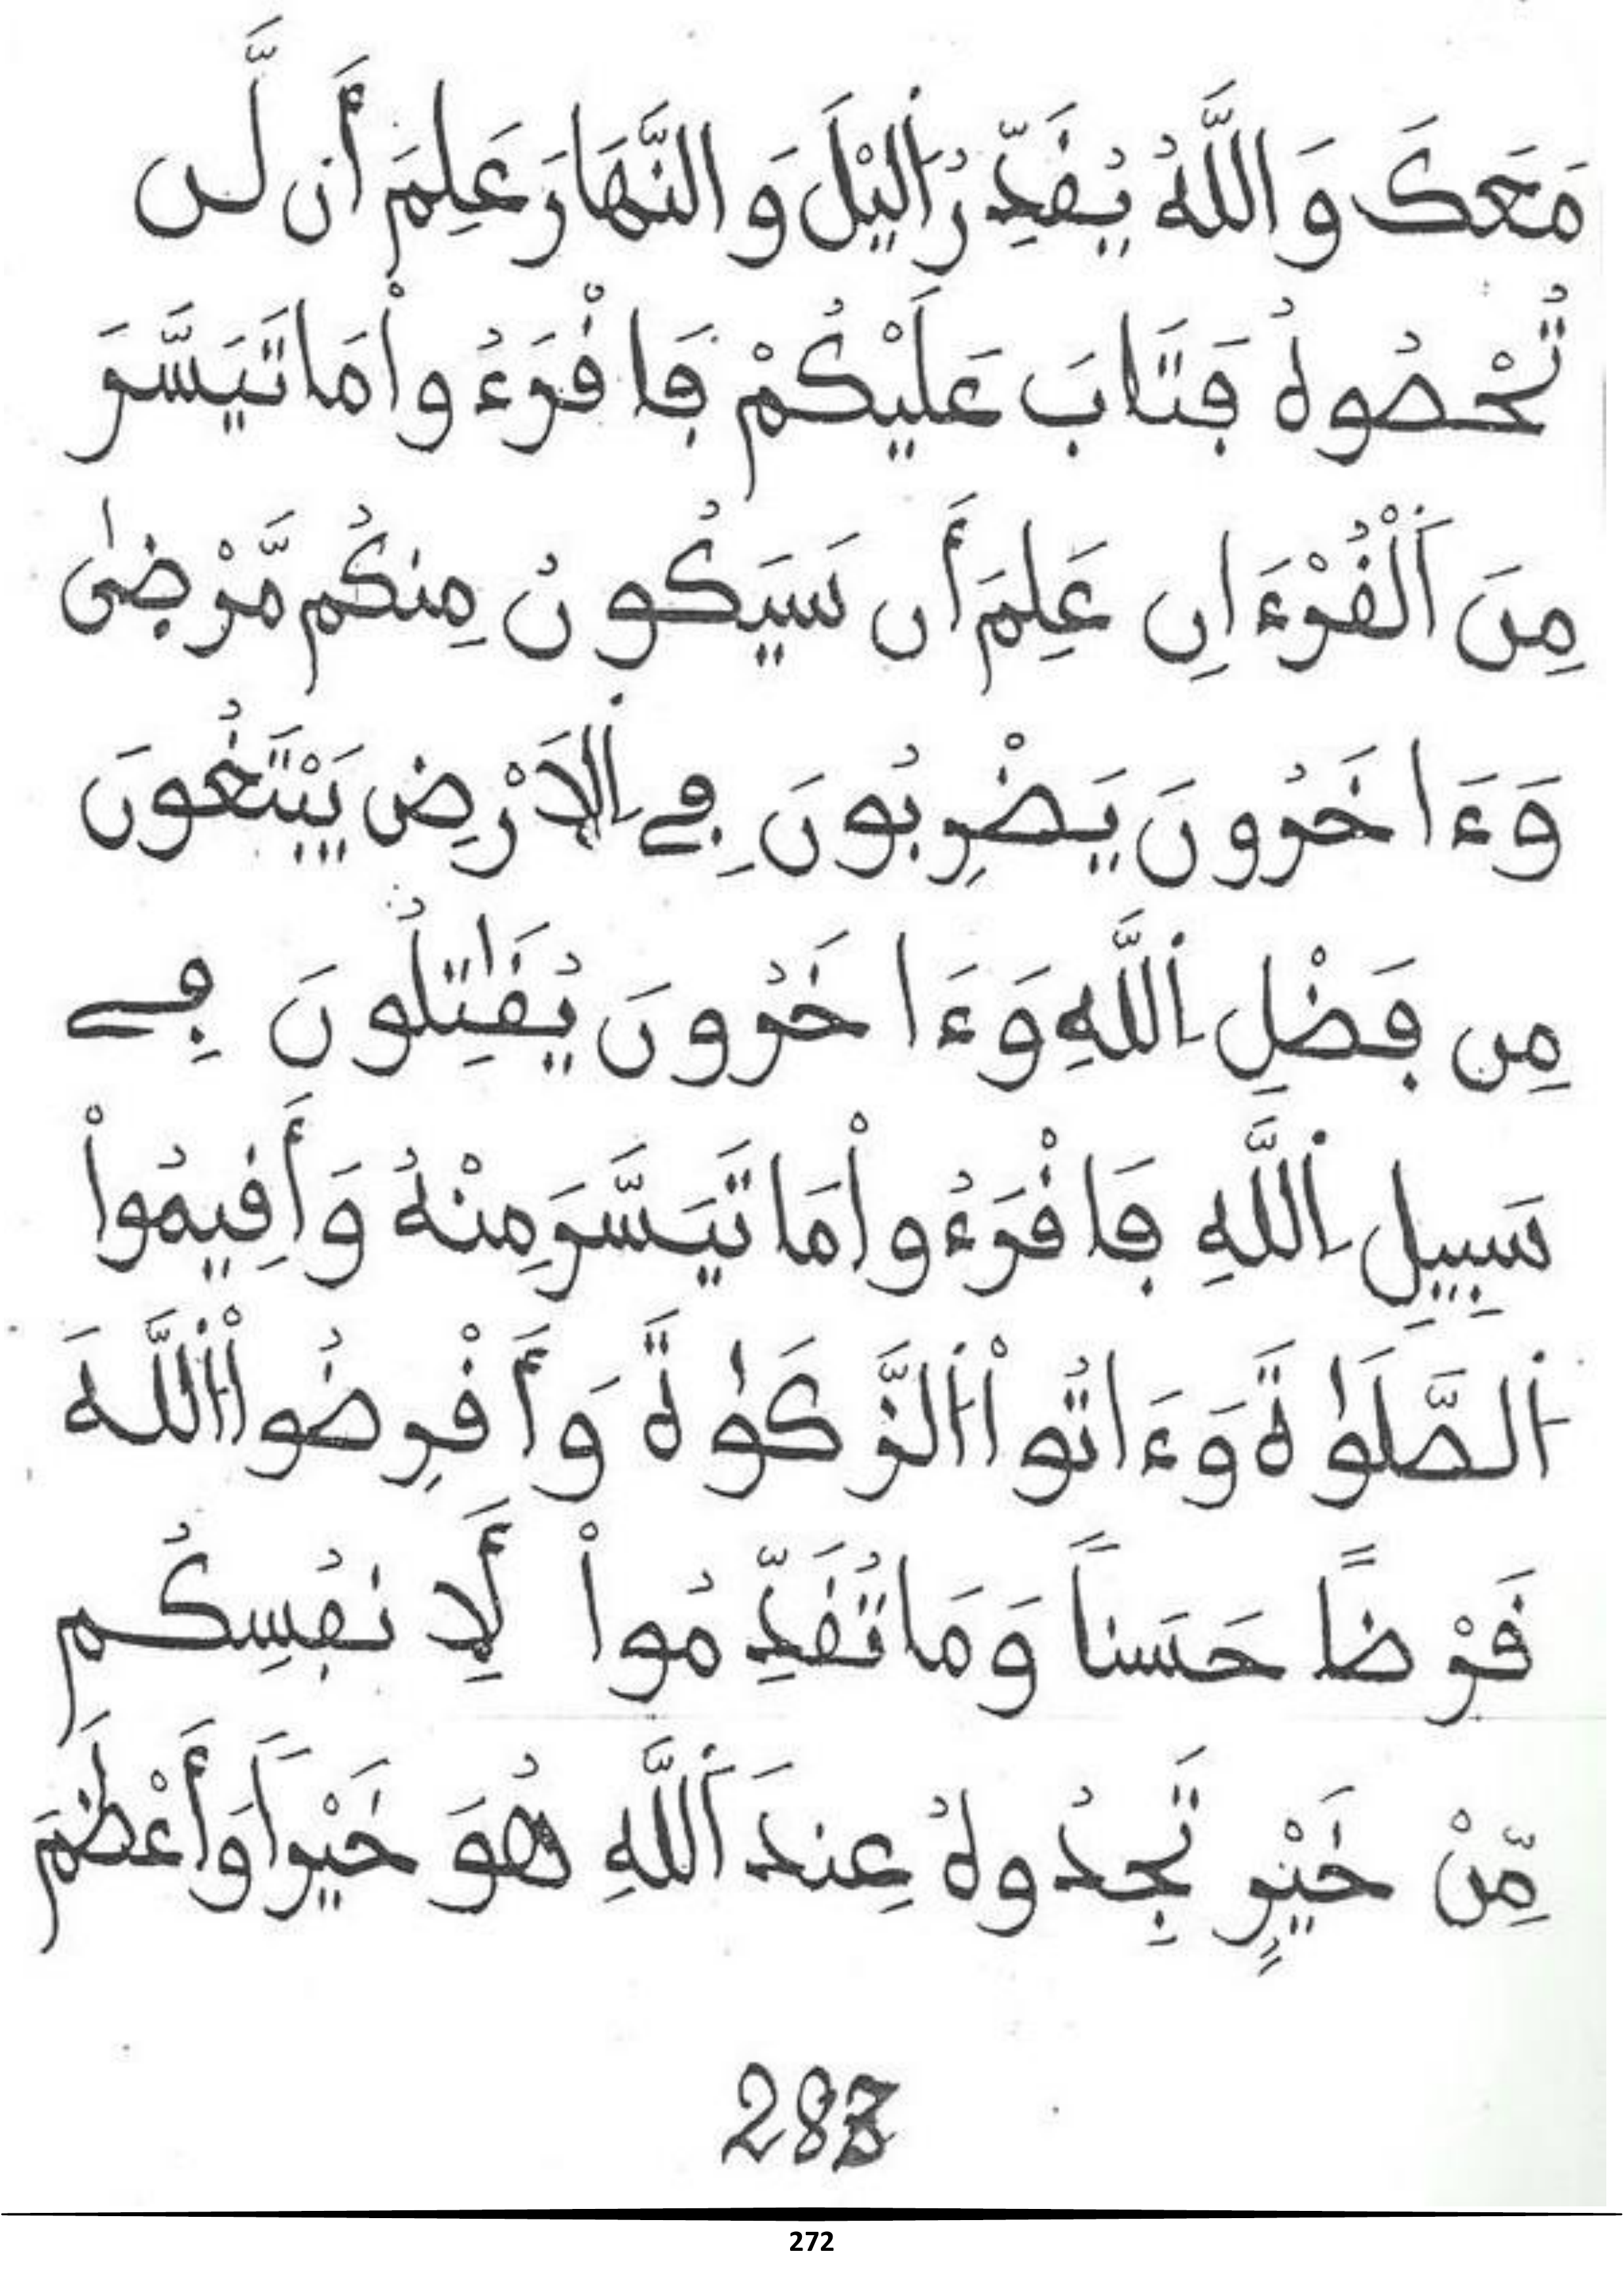 مَعَكَ وَاللَّهُ يُقَدِّرُ اَ۬ليْلَ وَالنَّهَارَ عَلِمَ أَن لَّن
تُحْصُوهُ فَتَابَ عَلَيْكُمْ فَاقْرَءُواْ مَا تَيَسَّرَ
مِنَ اَ۬لْقُرْءَانِ عَلِمَ أَن سَيَكُونُ مِنكُم مَّرْضىٰ
وَءَاخَرُونَ يَضْرِبُونَ فِے اِ۬لَارْضِ يَبْتَغُونَ
مِن فَضْلِ اِ۬للَّهِ وَءَاخَرُونَ يُقَٰتِلُونَ فِے
سَبِيلِ اِ۬للَّهِ فَاقْرَءُواْ مَا تَيَسَّرَ مِنْهُ وَأَقِيمُواْ
اُ۬لصَّلَوٰةَ وَءَاتُواْ اُ۬لزَّكَوٰةَ وَأَقْرِضُواْ اُ۬للَّهَ
قَرْضًا حَسَناً وَمَا تُقَدِّمُواْ لَأِنفُسِكُم
مِّنْ خَيْرٍ تَجِدُوهُ عِندَ اَ۬للَّهِ هُوَ خَيْراً وَأَعْظَمَ
283
272